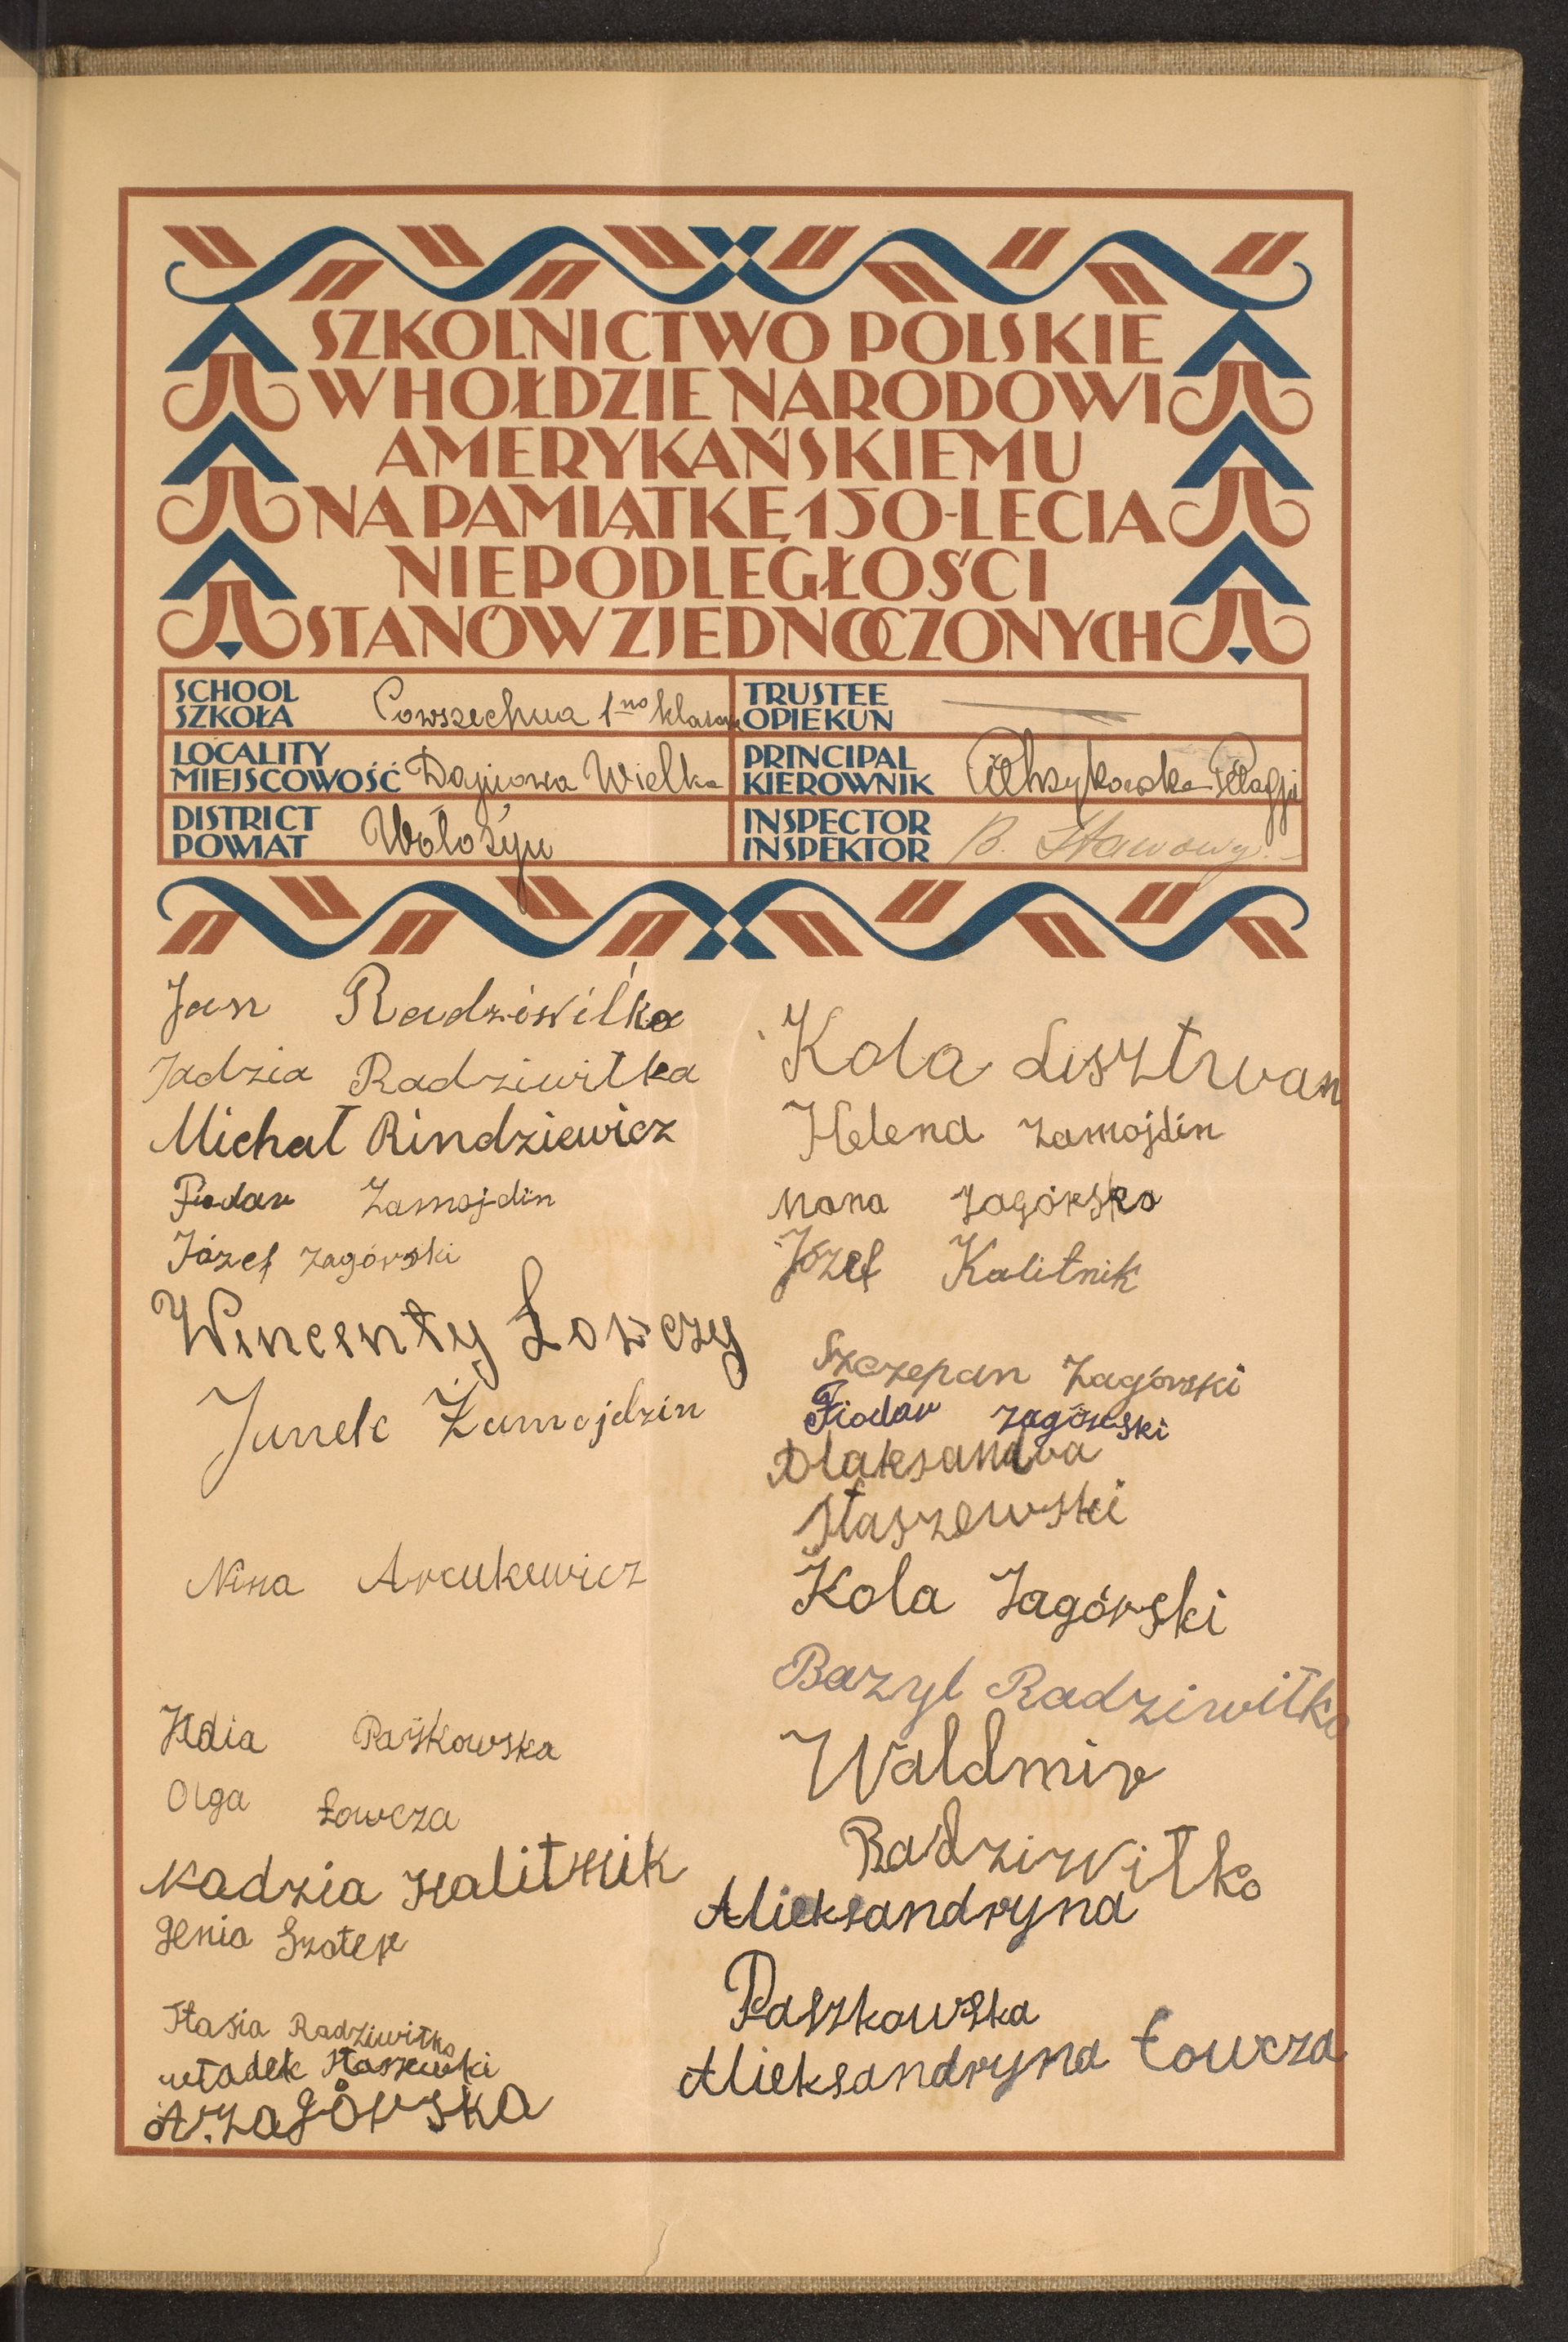 SZKOLNICTWO POLSKIE
W HOŁDZIE NARODOWI
AMERYKAŃSKIEMU
NA PAMIĄTKĘ 150-LECIA
NIEPODLEGŁOŚCI
STANÓW ZJEDNOCZONYCH
SCHOOL
SZKOŁA
Powszechna 1no klasowa
TRUSTEE
OPIEKUN
LOCALITY
MIEJSCOWOŚĆ
Dajnowa Wielka
PRINCIPAL
KIEROWNIK
DISTRICT
POWIAT
Wołożyn
INSPECTOR
INSPEKTOR
B.
Jan Radziwiłko
Jadzia Radziwiłka
Michał Rindziewicz
Fiodar Zamojdin
Józef Zagórski
Wincenty Łowczy
Janek Zamojdzin
Nina Arcukewicz
Paszkowska
Olga Łowcza
Nadzia Kalitnik
Genia
Stasia Radziwiłko
władek Staszewski
A. Zagórska
Kola Lisztwan
Helena Zamojdin
Mana Zagórska
Józef Kalitnik
Szczepan Zagórski
Fiodar Zagórski
Olaksandra
Staszewski
Kola Zagórski
Bazyl Radziwiłko
Waldmir
Radziwiłko
Alieksandryna
Paszkowska
Alieksandryna Łowcza